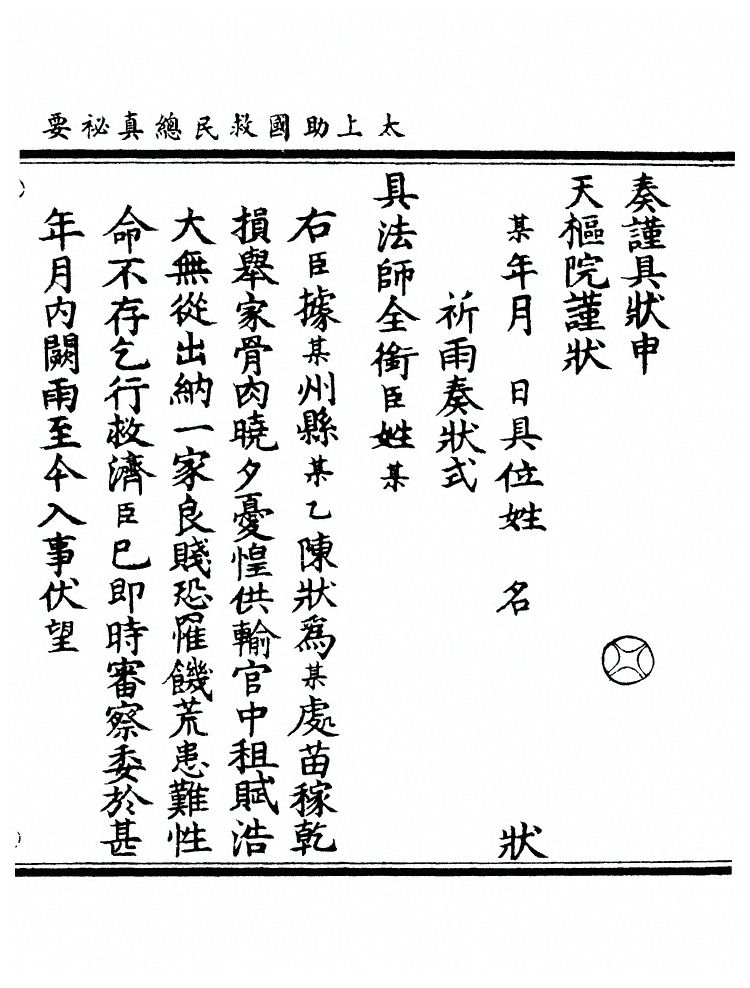 太上助國救民總真祕要
奏謹具狀申
天樞院謹狀
某年月　日具位姓　名　狀
祈雨奏狀式
具法師全銜臣姓某
右臣據某州縣某乙陳狀爲某處苗稼乾
損舉家骨肉曉夕憂惶供輸官中租賦浩
大無從出納一家良賤恐罹饑荒患難性
命不存乞行救濟臣已即時審察委於甚
年月內闕雨至今入事伏望